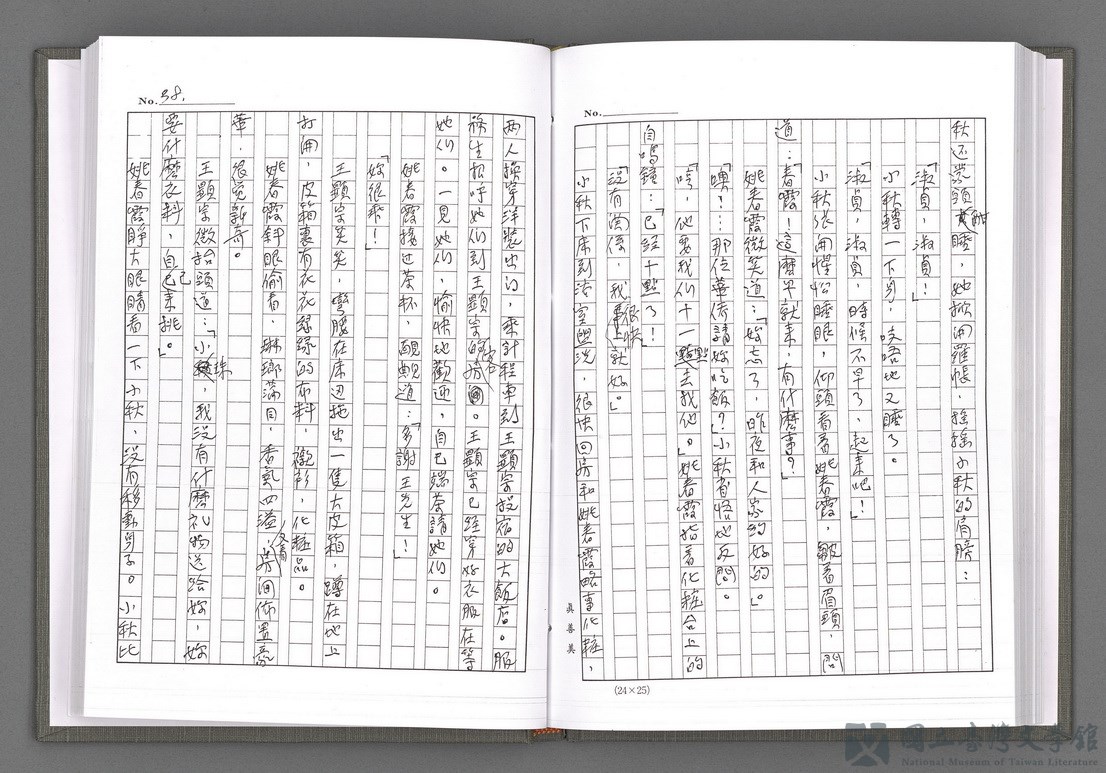 No.
秋還蒙頭酣睡，她掀開羅帳，搖搖小秋的肩膀：
「淑貞，淑貞！」
小秋轉一下身，咬唔地又睡了。
「淑貞，淑貞，時候不早了，起來吧！」
小秋張開惺忪睡眼，仰頭看看姚春霞，皺著眉頭，問
道：「春霞！這麼早就來，有什麼事？」
姚春霞微笑道：「妳忘了，昨夜和人家約好的。」
「噢！…那位華僑請妳吃飯？」小秋省悟地反問。
「唔，他要我们十一點去找他。」姚春霞指著化粧台上的
自鳴鐘：「已經十點了！」
「沒有關係，我很快就好。」
小秋下床到浴室盥洗，很快回房和姚春霞略事化粧，
眞善美
(24×25)
No. 38.
兩人換穿洋裝出门，乘計程車到王顯宗投宿的大飯店。服
務生招呼她们到王顯宗的房间。王顯宗已經穿好衣服在等
她们。一見她们，愉快地歡迎，自己端茶請她们。
姚春霞接过茶杯，靦覥道：「多謝王先生！」
「妳很乖！」
王顯宗笑笑，彎腰在床边拖出一隻大皮箱，蹲在地上
打開，皮箱裏有衣衣綠綠的布料，襯衫，化粧品。
姚春霞斜眼偷看，琳瑯滿目，香氣四溢；房间佈置豪
華，很覚新奇。
王顯宗微抬頭道：「小珠，我沒有什麼礼物送給妳，妳
要什麼衣料，自己來挑。」
姚春霞睜大眼睛看一下小秋，沒有移動身子。小秋比
國立臺灣文學館
National Museum of Taiwan Literature